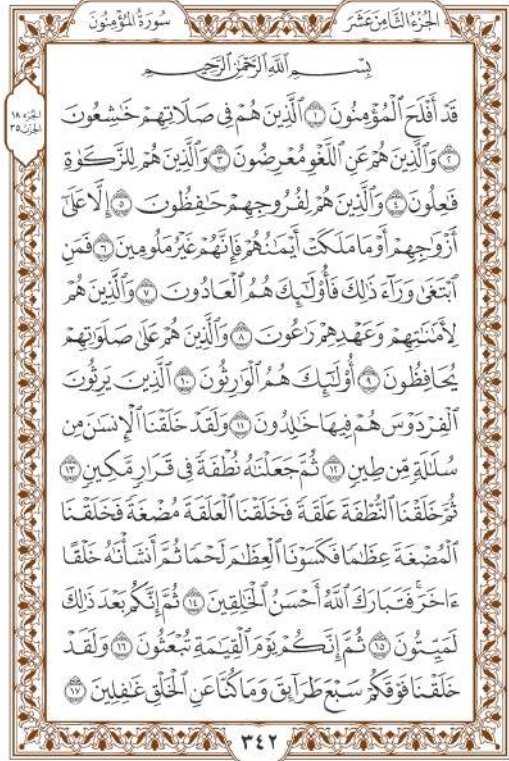 الجُزْءُ الثَّامِنَ عَشَرَ
سُورَةُ المُؤْمِنُونَ
الجزء ١٨
الحزب ٣٥
بِسْمِ اللَّهِ الرَّحْمَٰنِ الرَّحِيمِ
قَدْ أَفْلَحَ الْمُؤْمِنُونَ ١ الَّذِينَ هُمْ فِى صَلَاتِهِمْ خَٰشِعُونَ
٢ وَالَّذِينَ هُمْ عَنِ اللَّغْوِ مُعْرِضُونَ ٣ وَالَّذِينَ هُمْ لِلزَّكَوٰةِ
فَٰعِلُونَ ٤ وَالَّذِينَ هُمْ لِفُرُوجِهِمْ حَٰفِظُونَ ٥ إِلَّا عَلَىٰٓ
أَزْوَٰجِهِمْ أَوْ مَا مَلَكَتْ أَيْمَٰنُهُمْ فَإِنَّهُمْ غَيْرُ مَلُومِينَ ٦ فَمَنِ
ابْتَغَىٰ وَرَآءَ ذَٰلِكَ فَأُو۟لَٰٓئِكَ هُمُ الْعَادُونَ ٧ وَالَّذِينَ هُمْ
لِأَمَٰنَٰتِهِمْ وَعَهْدِهِمْ رَٰعُونَ ٨ وَالَّذِينَ هُمْ عَلَىٰ صَلَوَٰتِهِمْ
يُحَافِظُونَ ٩ أُو۟لَٰٓئِكَ هُمُ الْوَٰرِثُونَ ١٠ الَّذِينَ يَرِثُونَ
الْفِرْدَوْسَ هُمْ فِيهَا خَٰلِدُونَ ١١ وَلَقَدْ خَلَقْنَا الْإِنسَٰنَ مِن
سُلَٰلَةٍ مِّن طِينٍ ١٢ ثُمَّ جَعَلْنَٰهُ نُطْفَةً فِى قَرَارٍ مَّكِينٍ ١٣
ثُمَّ خَلَقْنَا النُّطْفَةَ عَلَقَةً فَخَلَقْنَا الْعَلَقَةَ مُضْغَةً فَخَلَقْنَا
الْمُضْغَةَ عِظَٰمًا فَكَسَوْنَا الْعِظَٰمَ لَحْمًا ثُمَّ أَنشَأْنَٰهُ خَلْقًا
ءَاخَرَ ۚ فَتَبَارَكَ اللَّهُ أَحْسَنُ الْخَٰلِقِينَ ١٤ ثُمَّ إِنَّكُم بَعْدَ ذَٰلِكَ
لَمَيِّتُونَ ١٥ ثُمَّ إِنَّكُمْ يَوْمَ الْقِيَٰمَةِ تُبْعَثُونَ ١٦ وَلَقَدْ
خَلَقْنَا فَوْقَكُمْ سَبْعَ طَرَآئِقَ وَمَا كُنَّا عَنِ الْخَلْقِ غَٰفِلِينَ ١٧
٣٤٢